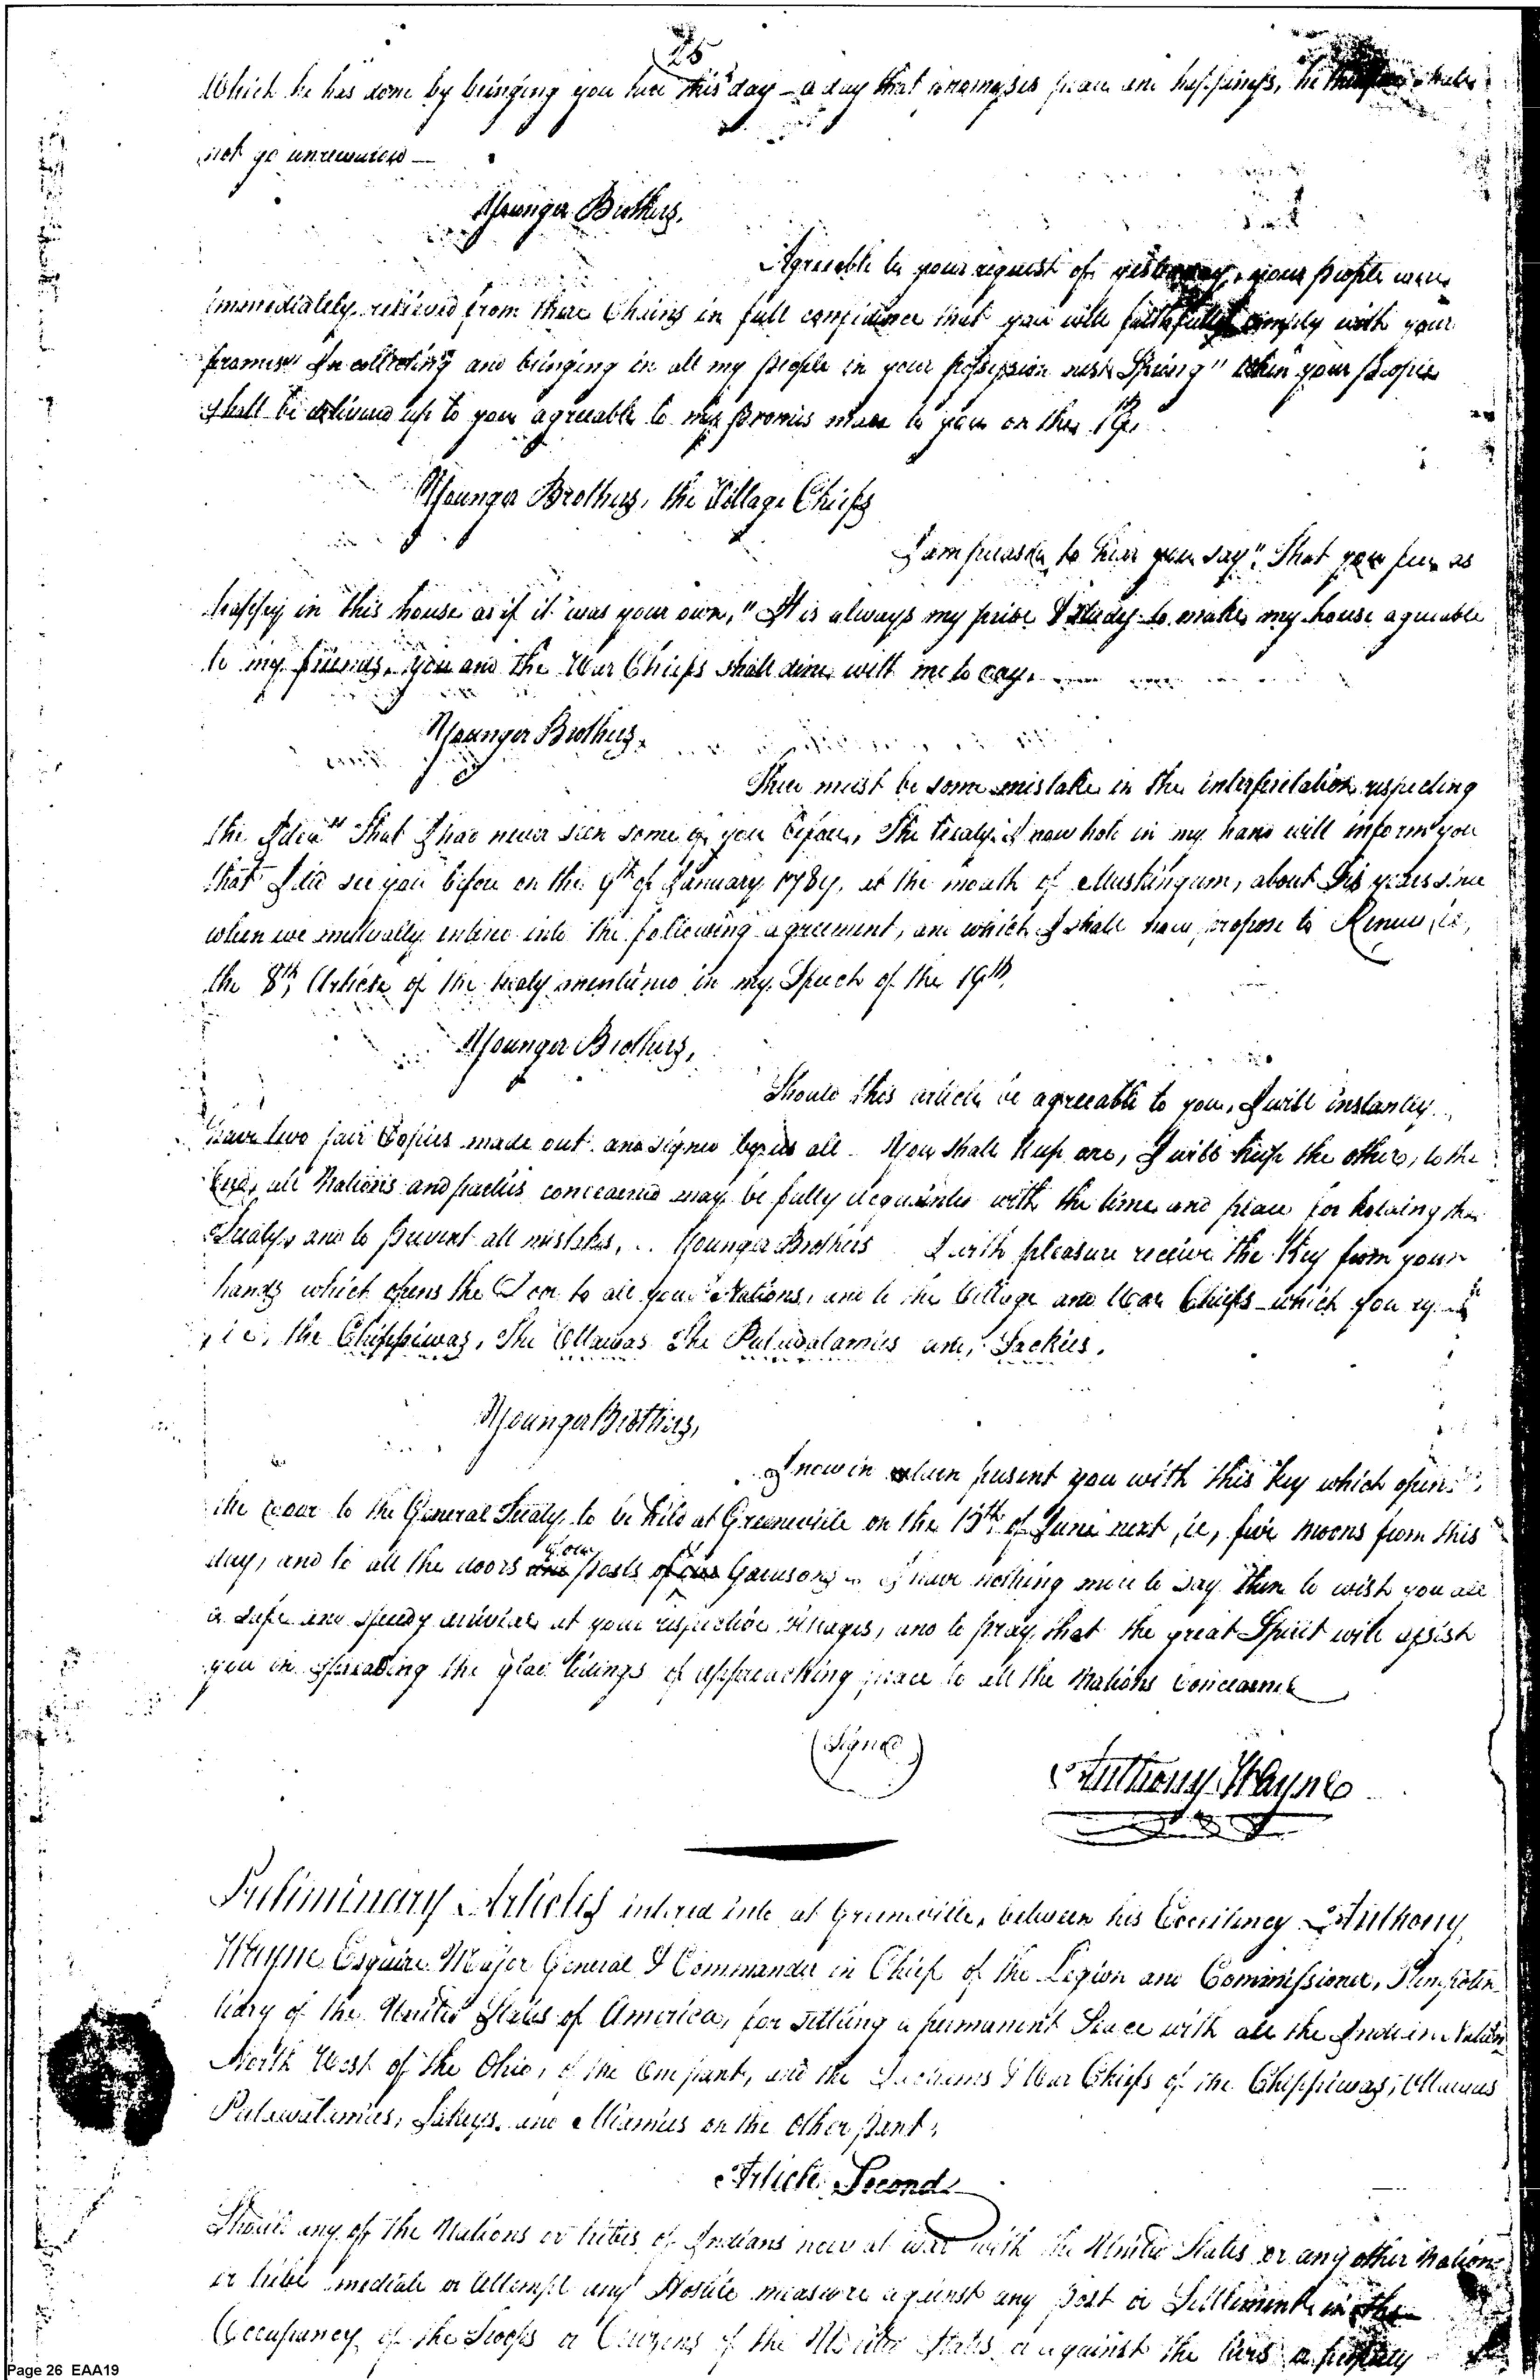 25
Which he has done by bringing you here this day – a day that promises peace and happiness, he therefore shall
not go unrewarded —
Younger Brothers,
Agreeable to your request of yesterday, your people were
immediately relieved from there Chains in full confidence that you will faithfully comply with your
promise "In collecting and bringing in all my people in your possession next Spring" when your people
shall be delivered up to you agreeable to my promis made to you on the 19th
Younger Brothers, the Village Chiefs
I am pleased to hear you say "That you feel as
happy in this house as if it was your own," It is always my pride & study to make my house agreeable
to my friends, you and the War Chiefs shall dine with me to day.
Younger Brothers,
There must be some mistake in the interpretation respecting
the Idea "That I had never seen some of you before, The treaty I now hold in my hand will inform you
that I did see you before on the 9th of January 1789, at the mouth of Muskingum, about Six years since
when we mutually entered into the following agreement, and which I shall now propose to Renew, ie,
the 8th Article of the treaty mentioned in my Speech of the 19th.
Younger Brothers,
Should this article be agreeable to you, I will instantly
have two fair Copies made out and signed by us all You shall keep one, I will keep the other, to the
End, all Nations and parties concearned may be fully acquainted with the time and place for holding the
Treaty, and to prevent all mistakes, .. Younger Brothers I with pleasure receive the Key from your
hands which opens the Door to all your Nations, and to the Village and War Chiefs which you
ie, the Chippiwas, The Ottawas The Putawatamies and, Sackies.
Younger Brothers,
I now in return present you with this key which opens
the door to the General Treaty to be held at Greeneville on the 15th of June next, ie, five moons from this
day, and to all the doors and your posts of our Garrisons I have nothing more to say than to wish you all
a safe and speedy arrival at your respective Villages, and to pray, that the great Spirit will assist
you in spreading the glad tidings of approaching peace to all the Nations Concearned
(Signed)
Anthony Wayne
Preliminary Articles entered into at Greeneville, between his Excellency Anthony
Wayne Esquire Major General & Commander in Chief of the Legion and Commissioner, Plenipoten
tiary of the United States of America, for settling a permanent Peace with all the Indian Nations
North West of the Ohio, of the one part, and the Sachems & War Chiefs of the Chippiwas, Ottawas
Putawatamies, Sakeys, and Miamies on the other part,
Article Second
Should any of the Nations or tribes of Indians now at war with the United States or any other Nation
or tribe meditate or attempt any Hostile measure against any post or Settlement in the
Occupancy of the Troops or Citizens of the United States or against the lives or property
Page 26 EAA19